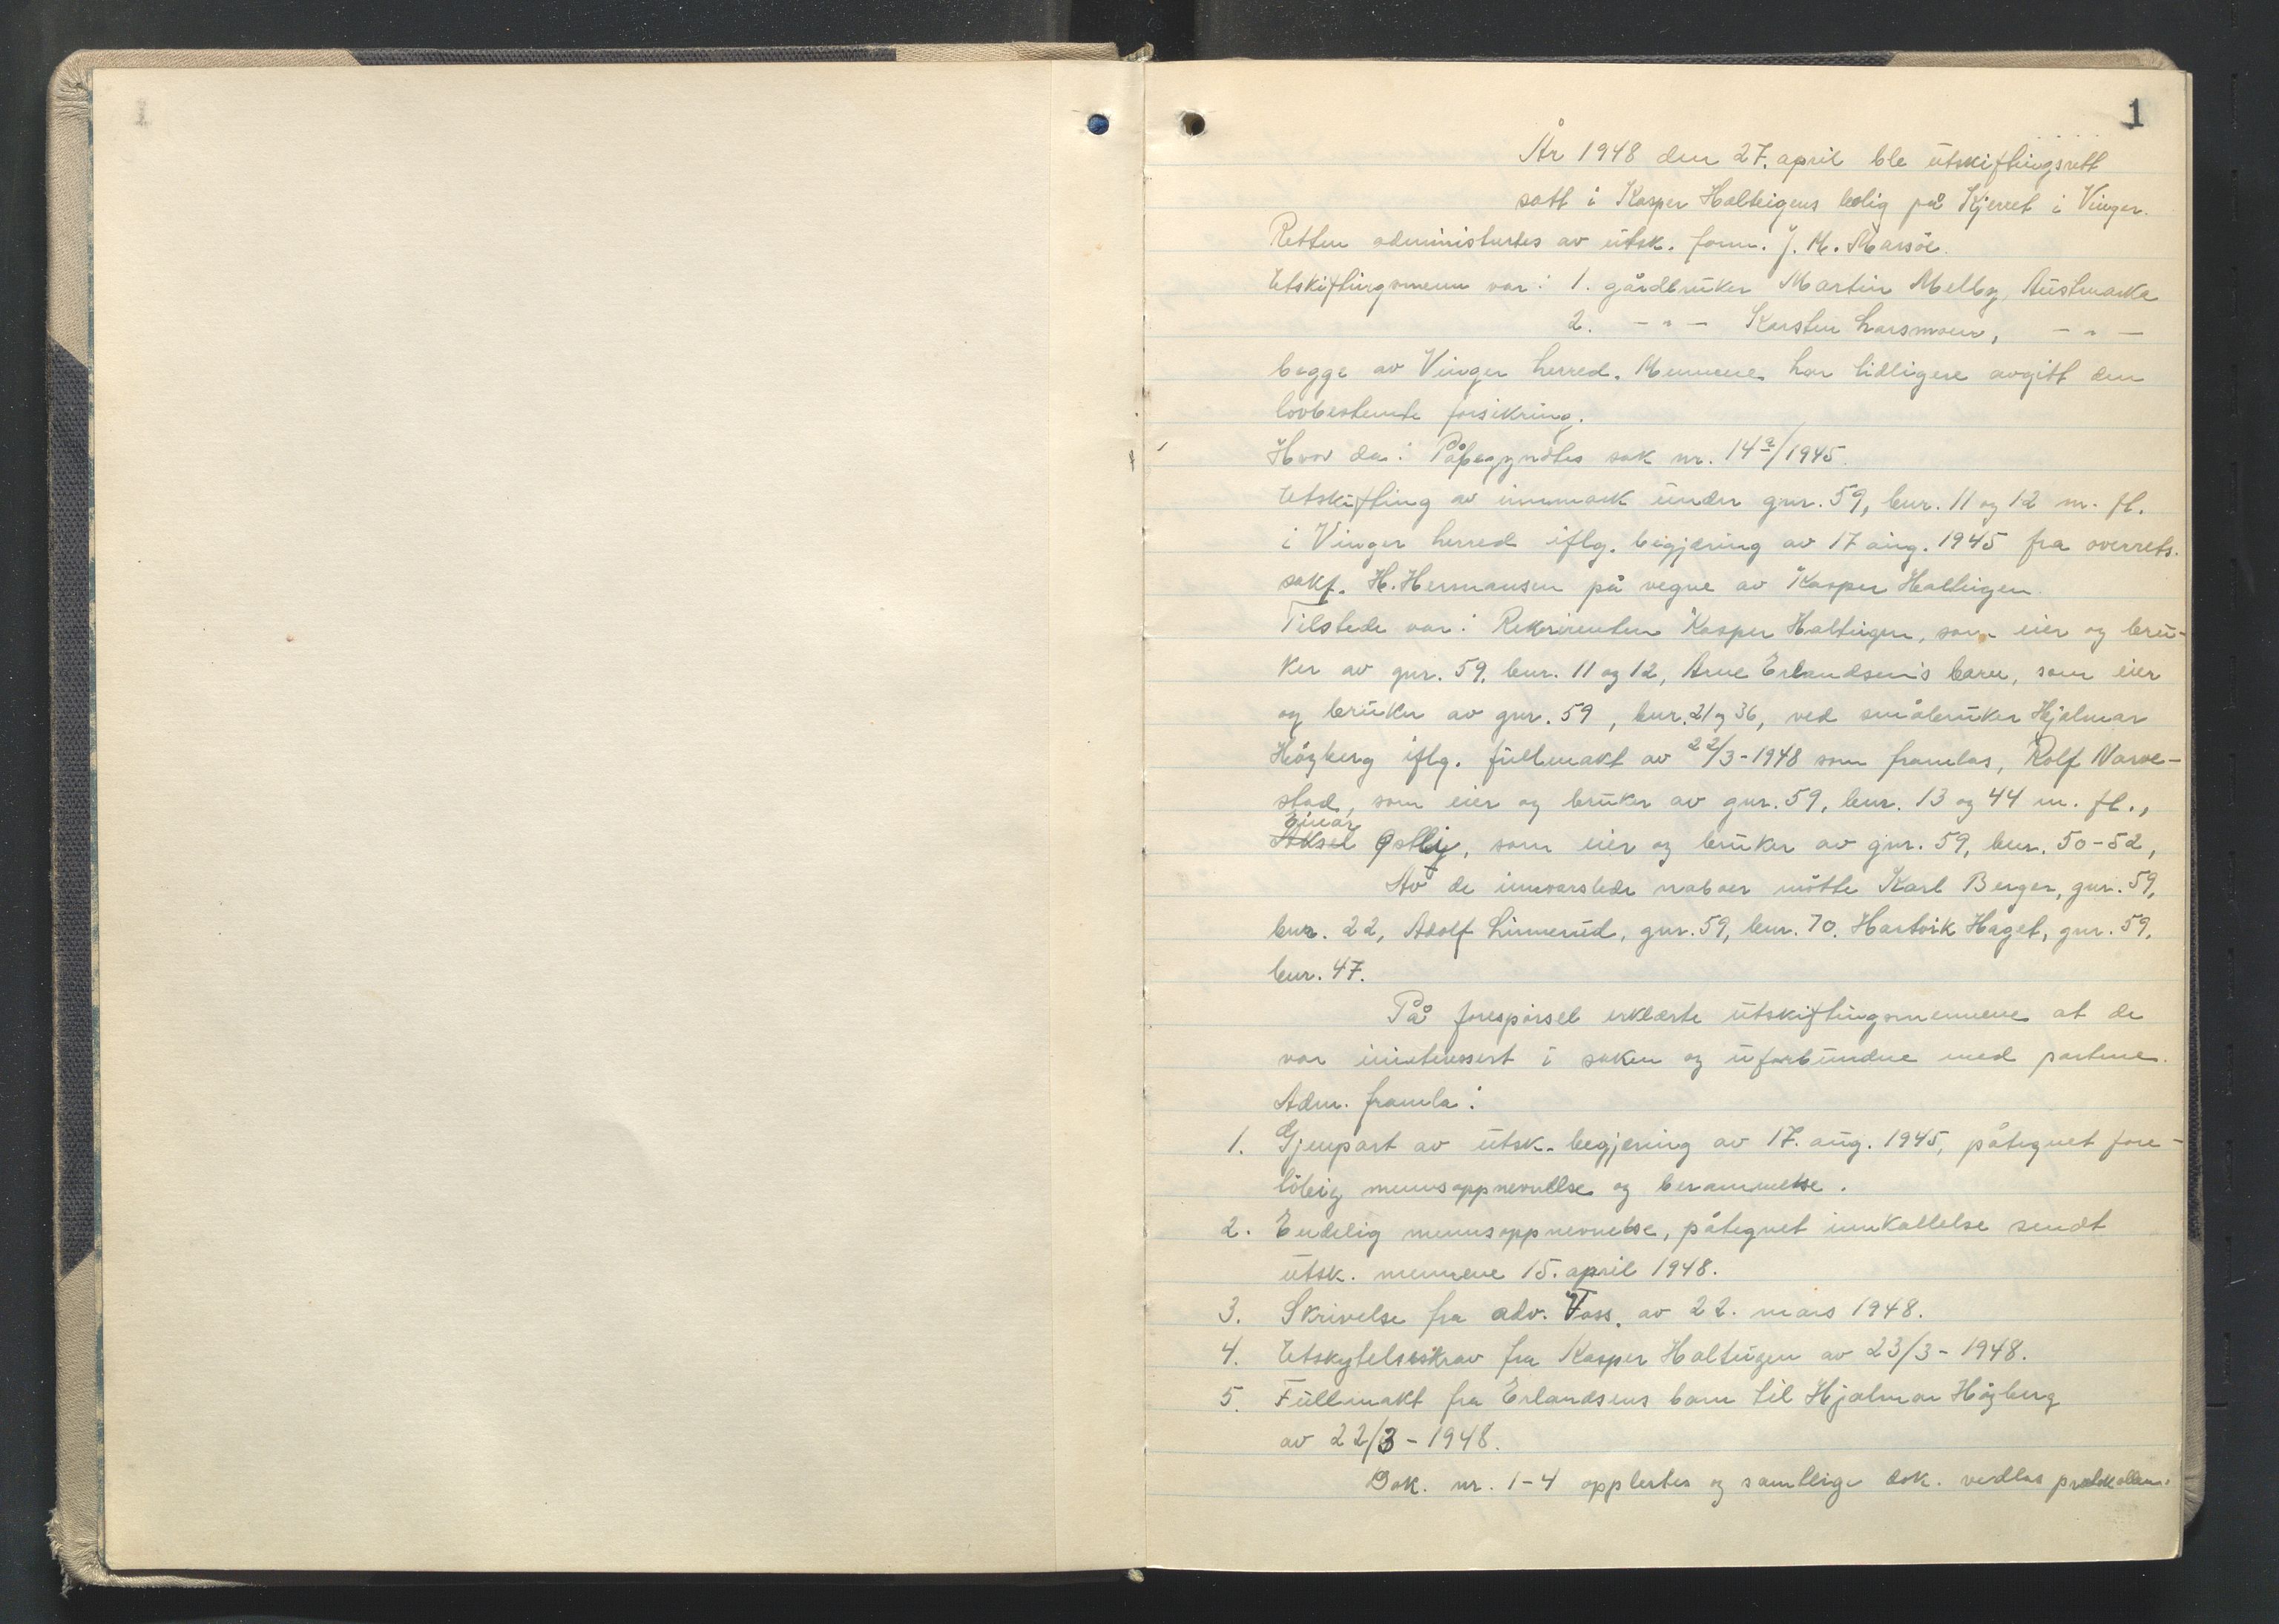 1
År 1948 den 27. april ble utskiftingsrett
satt i Kasper Halteigens bolig på Kjerret i Vinger.
Retten administertes av utsk. form. J. M. Marsöe.
Utskiftingsmenn var: 1. gårdbruker Martin Melby, Austmarka
2. - " - Karsten Larsmoen, - " -
begge av Vinger herred. Mennene har tidligere avgitt den
lovbestemte forsikring.
Hvor da: Påbegyndtes sak nr. 14a/1945.
Utskifting av innmark under gnr. 59, bnr. 11 og 12 m. fl.
i Vinger herred iflg. begjæring av 17 aug. 1945 fra overrets-
sakf. H. Hermansen på vegne av Kasper Halteigen.
Tilstede var: Rekvirenten Kasper Halteigen, som eier og bru-
ker av gnr. 59, bnr. 11 og 12, Arne Erlandsen's barn, som eier
og bruker av gnr. 59, bnr. 21 og 36, ved småbruker Hjalmar
Högberg iflg. fullmakt av 22/3-1948 som framlas, Rolf Narve-
stad, som eier og bruker av gnr. 59, bnr. 13 og 44 m. fl.,
Einar
Aksel Østby, som eier og bruker av gnr. 59, bnr. 50-52,
Av de innvarslede naboer mötte Karl Berger, gnr. 59,
bnr. 22, Adolf Linnerud, gnr. 59, bnr. 70. Hartvik Haget, gnr. 59,
bnr. 47.
På forespörsel erklærte utskiftingsmennene at de
var uinteressert i saken og uforbundne med partene.
Adm. framla:
1. Gjenpart av utsk. begjæring av 17. aug. 1945, påtegnet fore-
löbig mennsoppnevnelse og berammelse.
2. Endelig mennsoppnevnelse, påtegnet innkallelse sendt
utsk. mennene 15. april 1948.
3. Skrivelse fra adv. Foss. av 22. mars 1948.
4. Utskytelseskrav fra Kasper Halteigen av 23/3-1948.
5. Fullmakt fra Erlandsens barn til Hjalmar Högberg
av 22/3-1948.
Dok. nr. 1-4 opplestes og samtlige dok. vedlas protokollen.